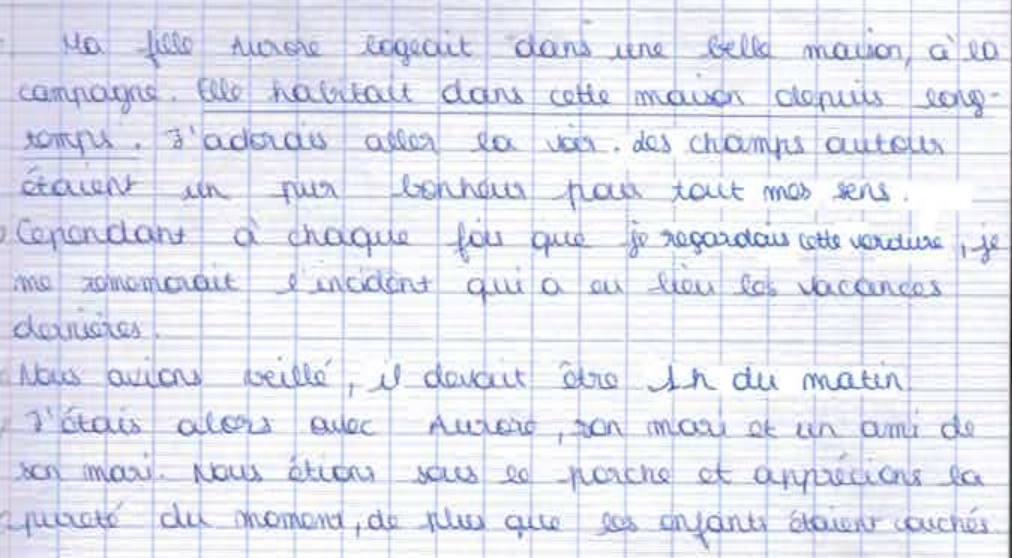 Ma fille Aurore logeait dans une belle maison, à la
campagne. Elle habitait dans cette maison depuis long-
temps. J'adorais aller la voir. des champs autour
étaient un pur bonheur pour tout mes sens.
Cependant à chaque fois que je regardais cette verdure, je
me remémorait l'incident qui a eu lieu les vacances
dernières.
Nous avions veillé, il devait être 1h du matin.
J'étais alors avec Aurore, son mari et un ami de
son mari. Nous étions sous le porche et apprécions la
pureté du moment, de plus que les enfants étaient couchés